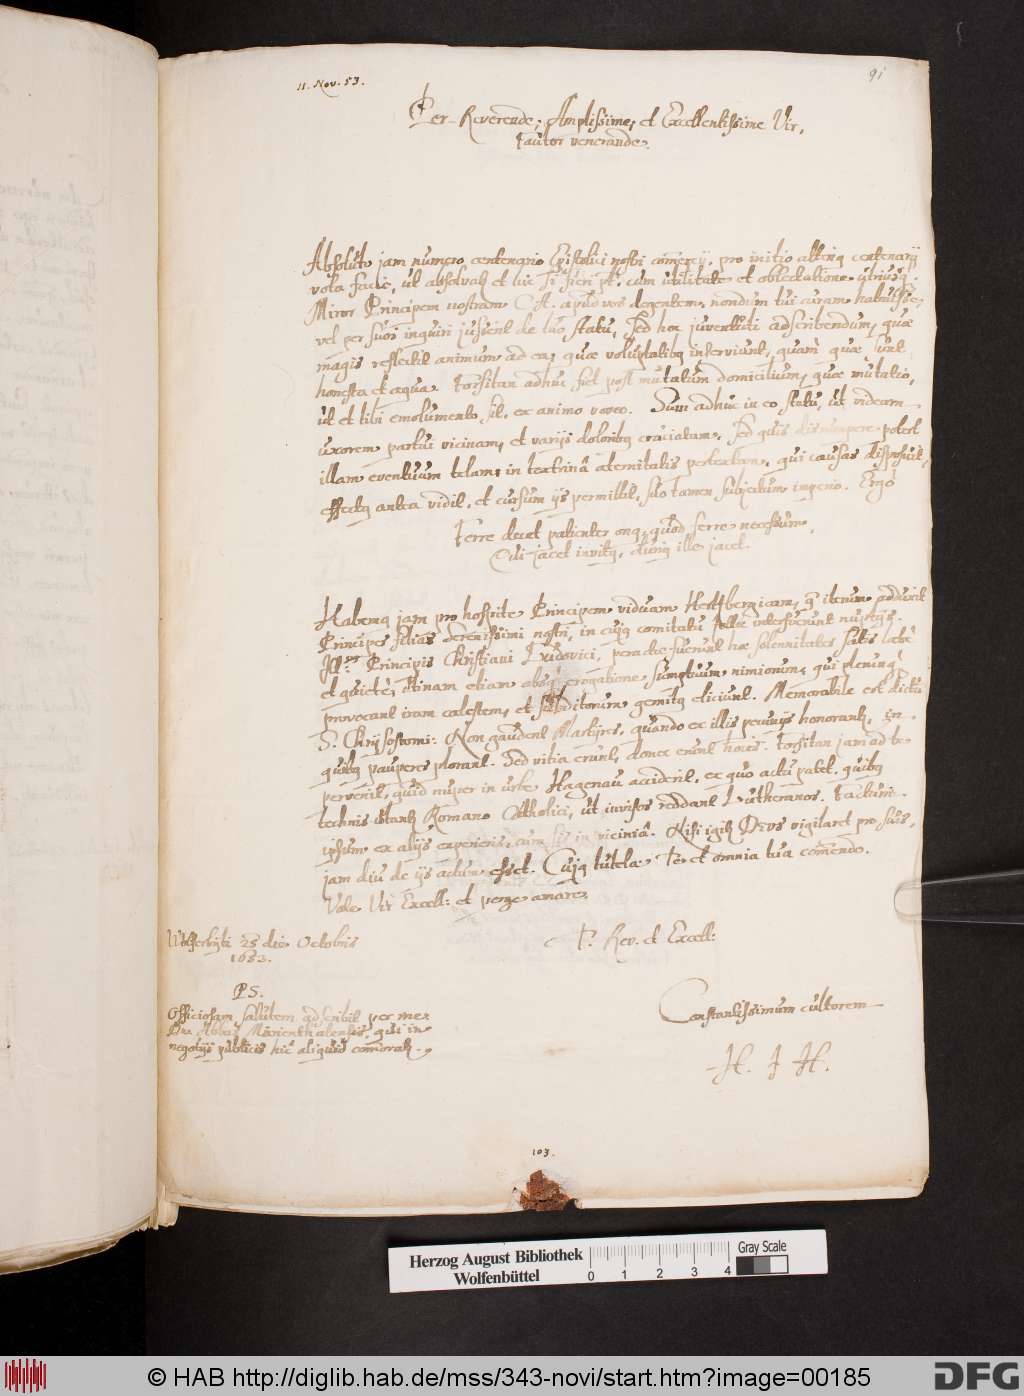 11. Nov. 53.
91
Per-Reverende, Amplissime, et Excellentissime Vir,
Fautor venerande.
Absoluto jam numero centenario Epistolici nostri comercij, pro initio alterig centenarij
vota facio, ut absolvat et hic si fieri pt. cum utilitate et oblectatione utriusq.
Miror Principem nostrum apud vos degentem, nondum tui curam habuisse,
vel per suos inquiri jussent de tuo statu, sed hoc juventuti adscribendum, quae
magis reflectit animum ad ea, quae voluptatibq inserviunt, quam quae sunt
honesta et aequa. Forsitan adhuc fiet post mutatum domicilium, quae mutatio,
ut et tibi emolumento sit, ex animo voveo. Sum adhuc in eo statu, ut videam
uxorem partui vicinam, et varijs doloribq cruciatam. Sed quis disrumpere potest
illam eventuum telam in textrinâ aeternitatis pertextam, qui causas disposuit,
effectq antea vidit, et cursum ijs permittit, suo tamen subjectum imperio. Ergo
Ferre decet patienter onq, quod ferre necessum,
Qui jacet invitq, durq ille jacet.
Habemq jam pro hospite Principem viduam iterum adduxit
Principes filias Serenissimi nostri, in cujq comitatu interfuerunt nuptijs
Principis Christiani Ludovici, peractae fuerunt hae solemnitates satis laete
et quiete, utinam etiam absq erogatione sumptuum nimiorum, qui plerunq
provocant iram caelestem, et subditorum gemitq eliciunt. Memorabile est dictum
S. Chrysostomi: Non gaudent Martyres, quando ex illis pecunijs honorantur, in
quibq pauperes plorant. Sed vitia erunt, donec erunt homines. Forsitan jam ad te
pervenit, quid nuper in urbe Hagenau acciderit, ex quo actu patet, quibq
technis utantur Romano Catholici, ut invisos reddant Lutheranos. Factum
ipsum ex alijs experieris, cum sis in viciniâ. Nisi igitur Deus vigilaret pro suis,
jam diu de ijs actum esset. Cujq tutelae Te et omnia tua comendo.
Vale Vir Excell: et perge amare
T. Rev. et Excell:
Wolferbyti 25 die Octobris
1653.
Constantissimum cultorem
H. J H.
PS.
Officiosam salutem adscribit per me
Dn. Abbas Marienthalensis, qui in
negotijs publicis hic aliquid comoratur.
103.
Herzog August Bibliothek
Wolfenbüttel
0 1 2 3 4
Gray Scale
© HAB http://diglib.hab.de/mss/343-novi/start.htm?image=00185
DFG